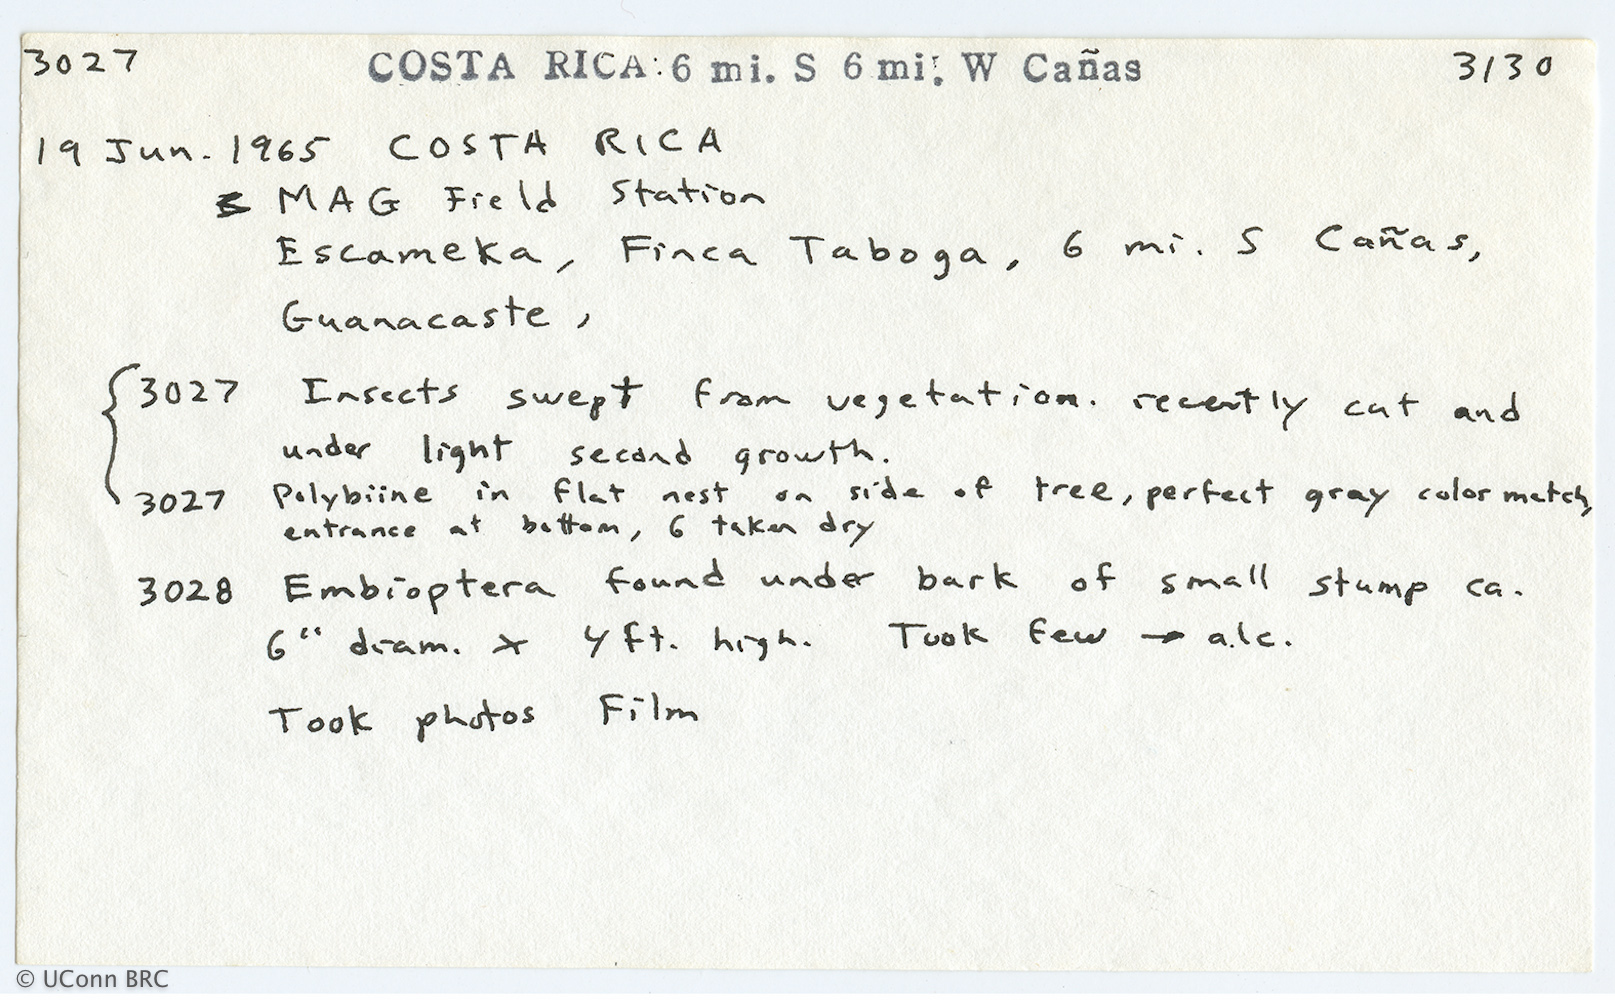 3027 COSTA RICA: 6 mi. S 6 mi. W Cañas 3130
19 Jun. 1965 COSTA RICA
MAG Field Station
Escameka, Finca Taboga, 6 mi. S Cañas,
Guanacaste,
3027 Insects swept from vegetation. recently cut and
under light second growth.
3027 Polybiine in flat nest on side of tree, perfect gray color match,
entrance at bottom, 6 taken dry
3028 Embioptera found under bark of small stump ca.
6" diam. x 4 ft. high. Took few → alc.
Took photos Film
© UConn BRC